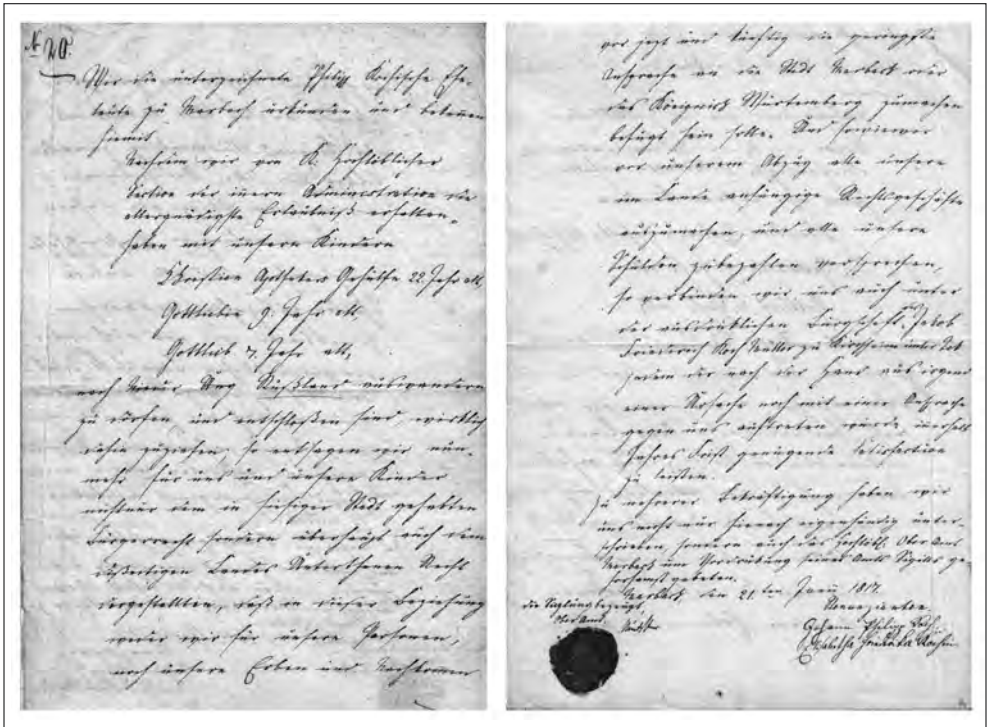 № 20.
Wir die unterzeichnete Philipp Kochische Ehe-
leute zu Marbach urkunden und bekennen
hiemit
Nachdem wir von K. Hochlöblicher
Section der innern Administration die
allergnädigste Erlaubniß erhalten,
haben mit unsern Kindern
Christian Apotheker Gehülfe 22. Jahr alt,
Gottlieb 9. Jahr alt,
Gottlieb 7. Jahr alt,
nach Rußland auswandern
zu dürfen, und entschloßen sind, wirklich
dahin zuziehen, so entsagen wir nun-
mehr für uns und unsere Kinder
nicht nur dem in hiesiger Stadt gehabten
Bürgerrecht sondern überhaupt auch dem
Landes Unterthanen Recht
dergestallten, daß in dieser Beziehung
weder wir für unsere Personen,
noch unsere Erben und Nachkommen
vor jezt und künftig die geringste
Ansprache an die Stadt Marbach oder
das Königreich Würtemberg zumachen
befugt sein solle. Und
vor unserem Abzug alle unsere
im Lande anhängige Rechtsgeschäfte
auszumachen, und alle unsere
Schulden zubezahlen versprechen,
so verbinden wir uns auch unter
der ausdrüklichen Bürgschaft Jakob
Friederich Koch Müller zu Kirchheim
jedem der nach der Hand aus irgend
einer Ursache noch mit einer Ansprache
gegen uns auftreten würde, innerhalb
Jahres Frist genügende Satisfaction
zu leisten.
Zu mehrerer Bekräftigung haben wir
uns nicht nur hienach eigenhändig unter-
schrieben, sondern auch das Hochlöbl. Ober Amt
Marbach um Vordrükung seines Amts Sigills ge-
horsamst gebeten.
Marbach, den 21. ten Juni 1817.
die Siglung bezeugt,
Ober Amt.
Johann Philipp Koch
Friderika Kochin